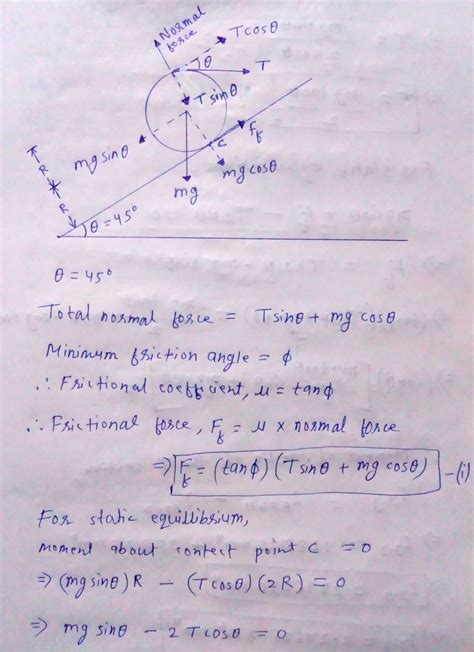 Normal
force
Tcosθ
θ
T
Tsinθ
mgsinθ
F_f
c
mgcosθ
mg
R
R
θ = 45°
θ = 45°
Total normal force = Tsinθ + mg cosθ
Minimum friction angle = φ
∴ Frictional coefficient, μ = tanφ
∴ Frictional force, F_f = μ × normal force
⇒ F_f = (tanφ) (Tsinθ + mg cosθ) —(i)
For static equillibrium,
moment about contect point C = 0
⇒ (mg sinθ) R − (Tcosθ) (2R) = 0
⇒ mg sinθ − 2 Tcosθ = 0